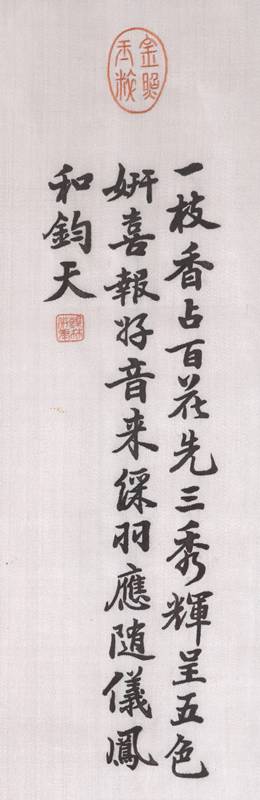 一枝香占百花先三秀輝呈五色
妍喜報好音来綵羽應随儀鳳
和鈞天